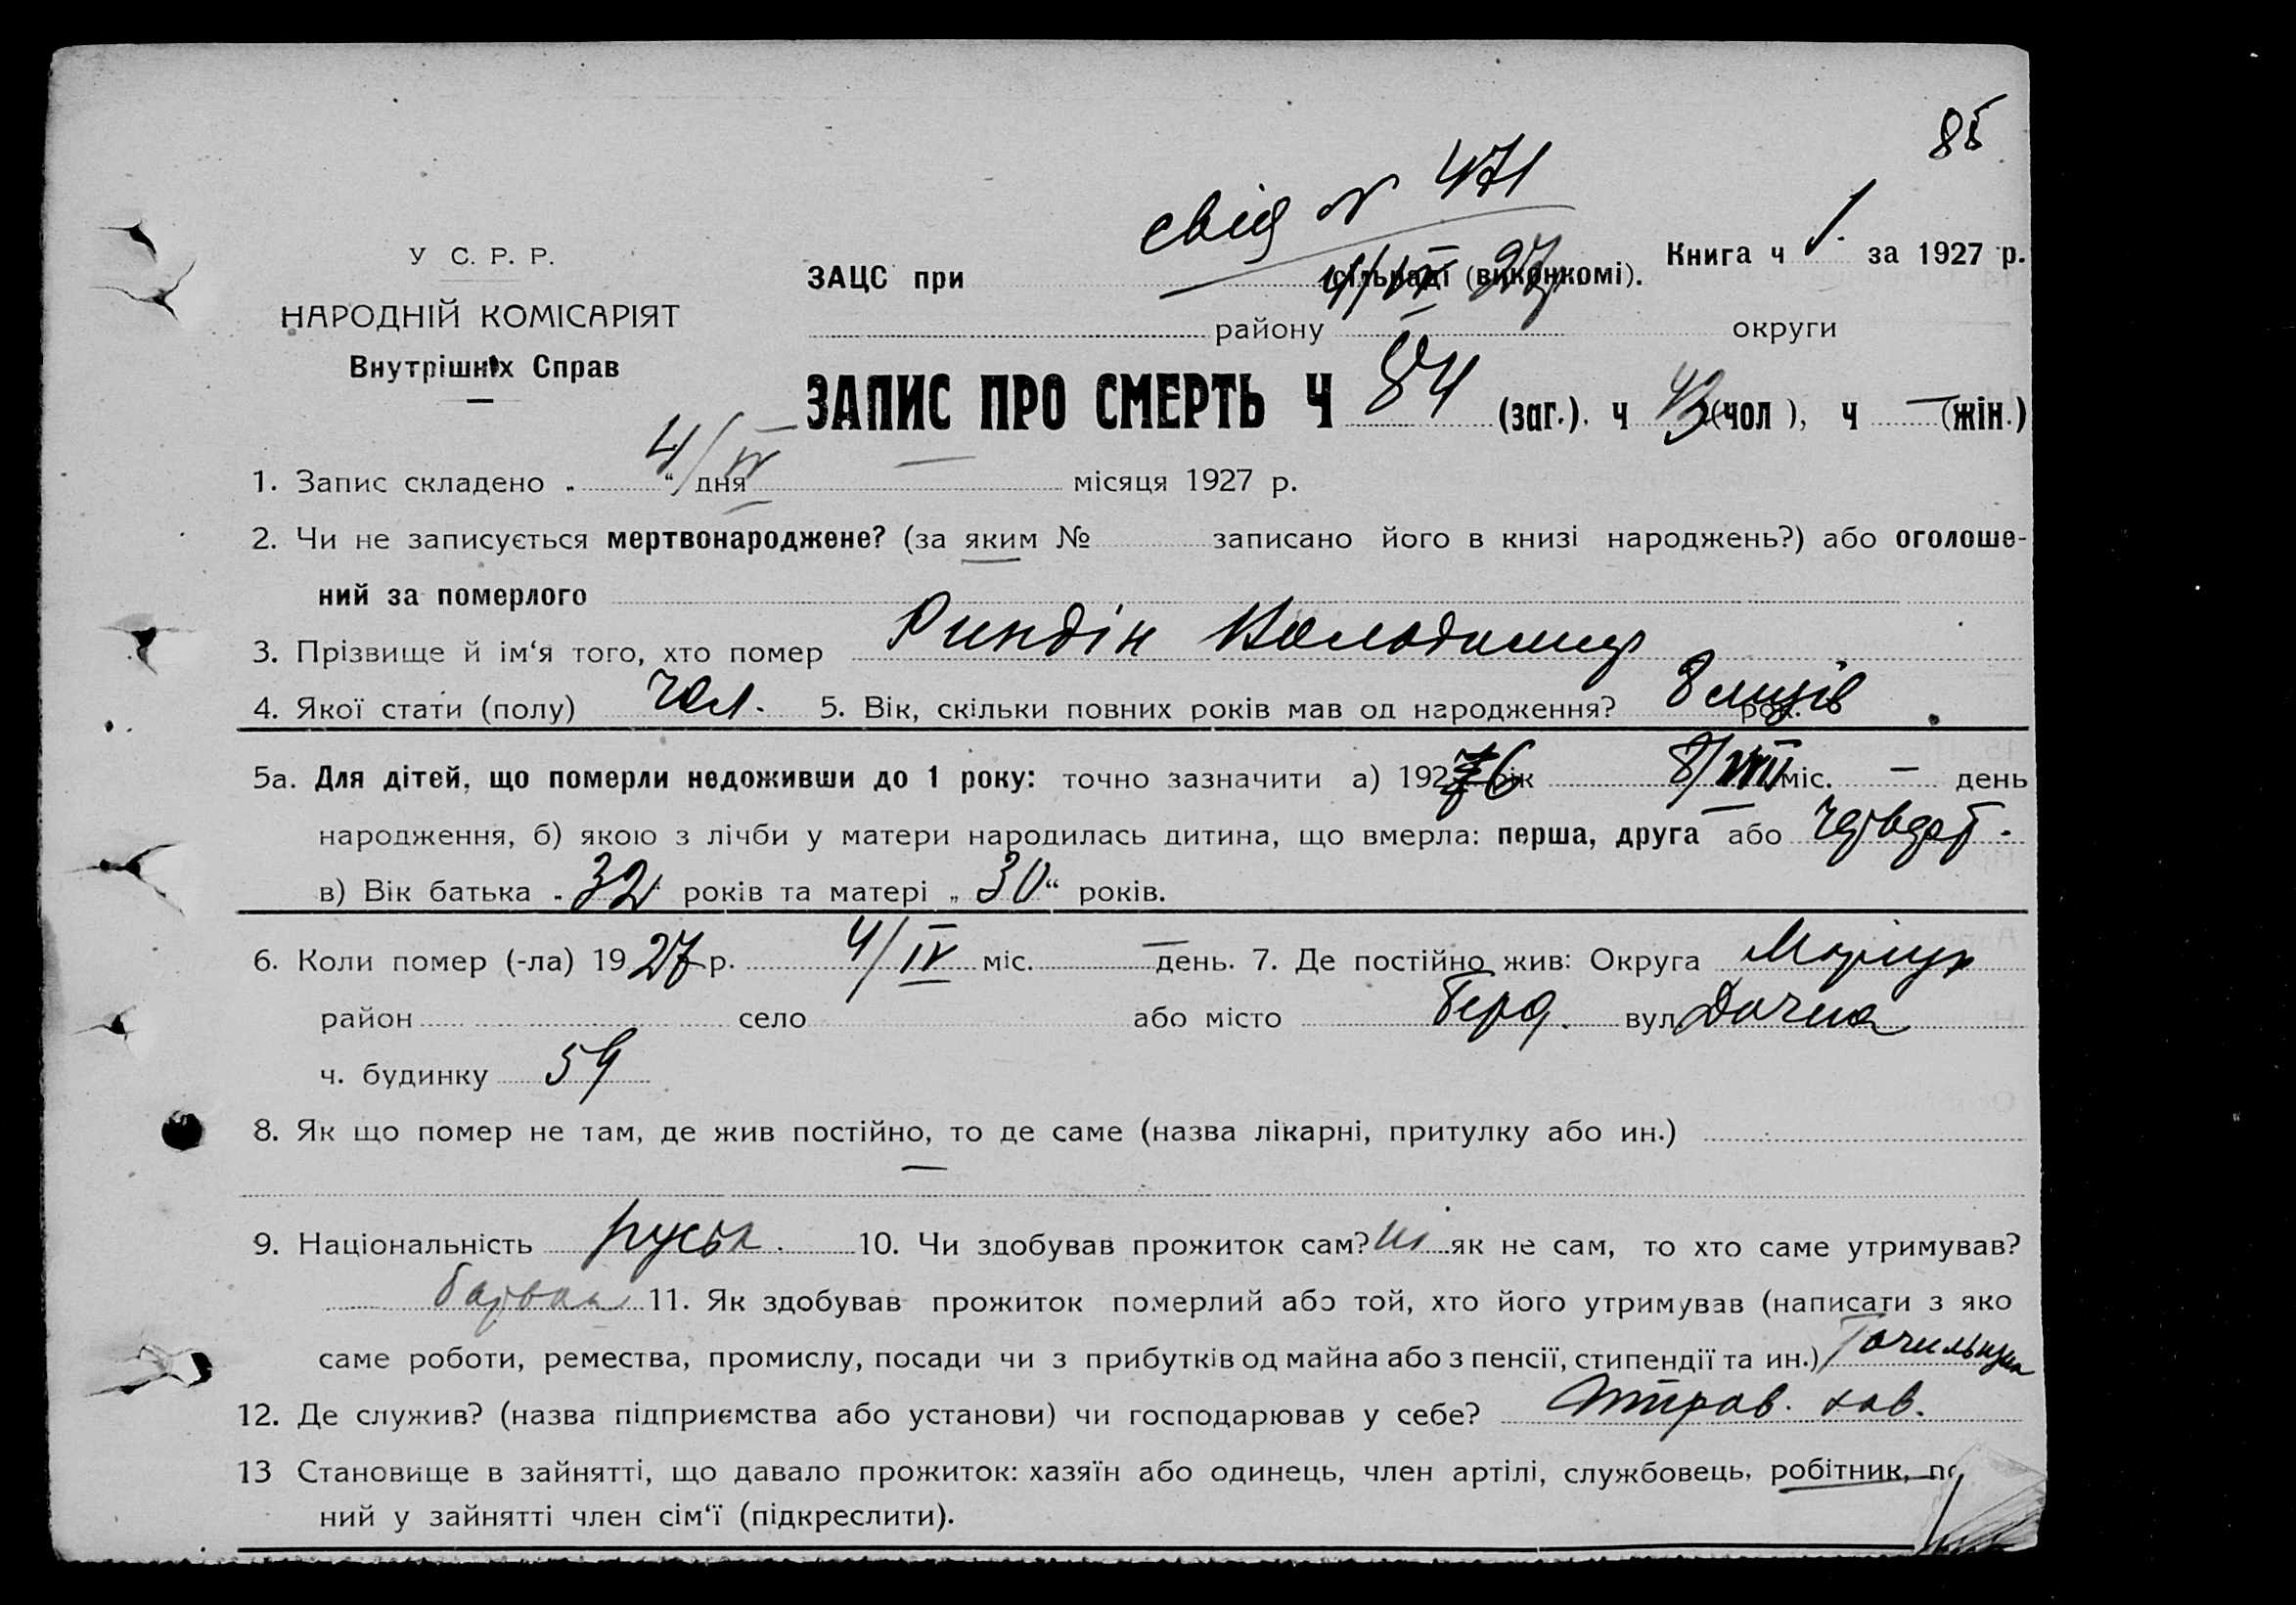 85
свід N 471
4/IV 27
У С. Р. Р.
НАРОДНІЙ КОМІСАРІЯТ
Внутрішніх Справ
ЗАЦС при сільраді (виконкомі). Книга ч 1. за 1927 р.
району округи
ЗАПИС ПРО СМЕРТЬ Ч 84 (заг.). ч 43 (чол ), ч — (жін.)
1. Запис складено „ 4/IV “ дня — місяця 1927 р.
2. Чи не записується мертвонароджене? (за яким № — записано його в книзі народжень?) або оголоше-
ний за померлого
3. Прізвище й ім‘я того, хто помер Риндін Володимир
4. Якої стати (полу) чол. 5. Вік, скільки повних років мав од народження? 8 місців рок.
5а. Для дітей, що померли недоживши до 1 року: точно зазначити а) 1926 рік 8/VIII міс. — день
народження, б) якою з лічби у матери народилась дитина, що вмерла: перша, друга або четверт.
в) Вік батька „ 32 “ років та матері „ 30 “ років.
6. Коли помер (-ла) 1927 р. 4/IV міс. — день. 7. Де постійно жив: Округа Маріуп
район село або місто Берд. вул Дачна
ч. будинку 59
8. Як що помер не там, де жив постійно, то де саме (назва лікарні, притулку або ин.)
—
9. Національність руськ. 10. Чи здобував прожиток сам? ні як не сам, то хто саме утримував?
батько 11. Як здобував прожиток померлий або той, хто його утримував (написати з яко
саме роботи, ремества, промислу, посади чи з прибутків од майна або з пенсії, стипендії та ин.) Точильник
12. Де служив? (назва підприємства або установи) чи господарював у себе?
13 Становище в зайнятті, що давало прожиток: хазяїн або одинець, член артілі, службовець, робітник, по
ний у зайнятті член сім‘ї (підкреслити).